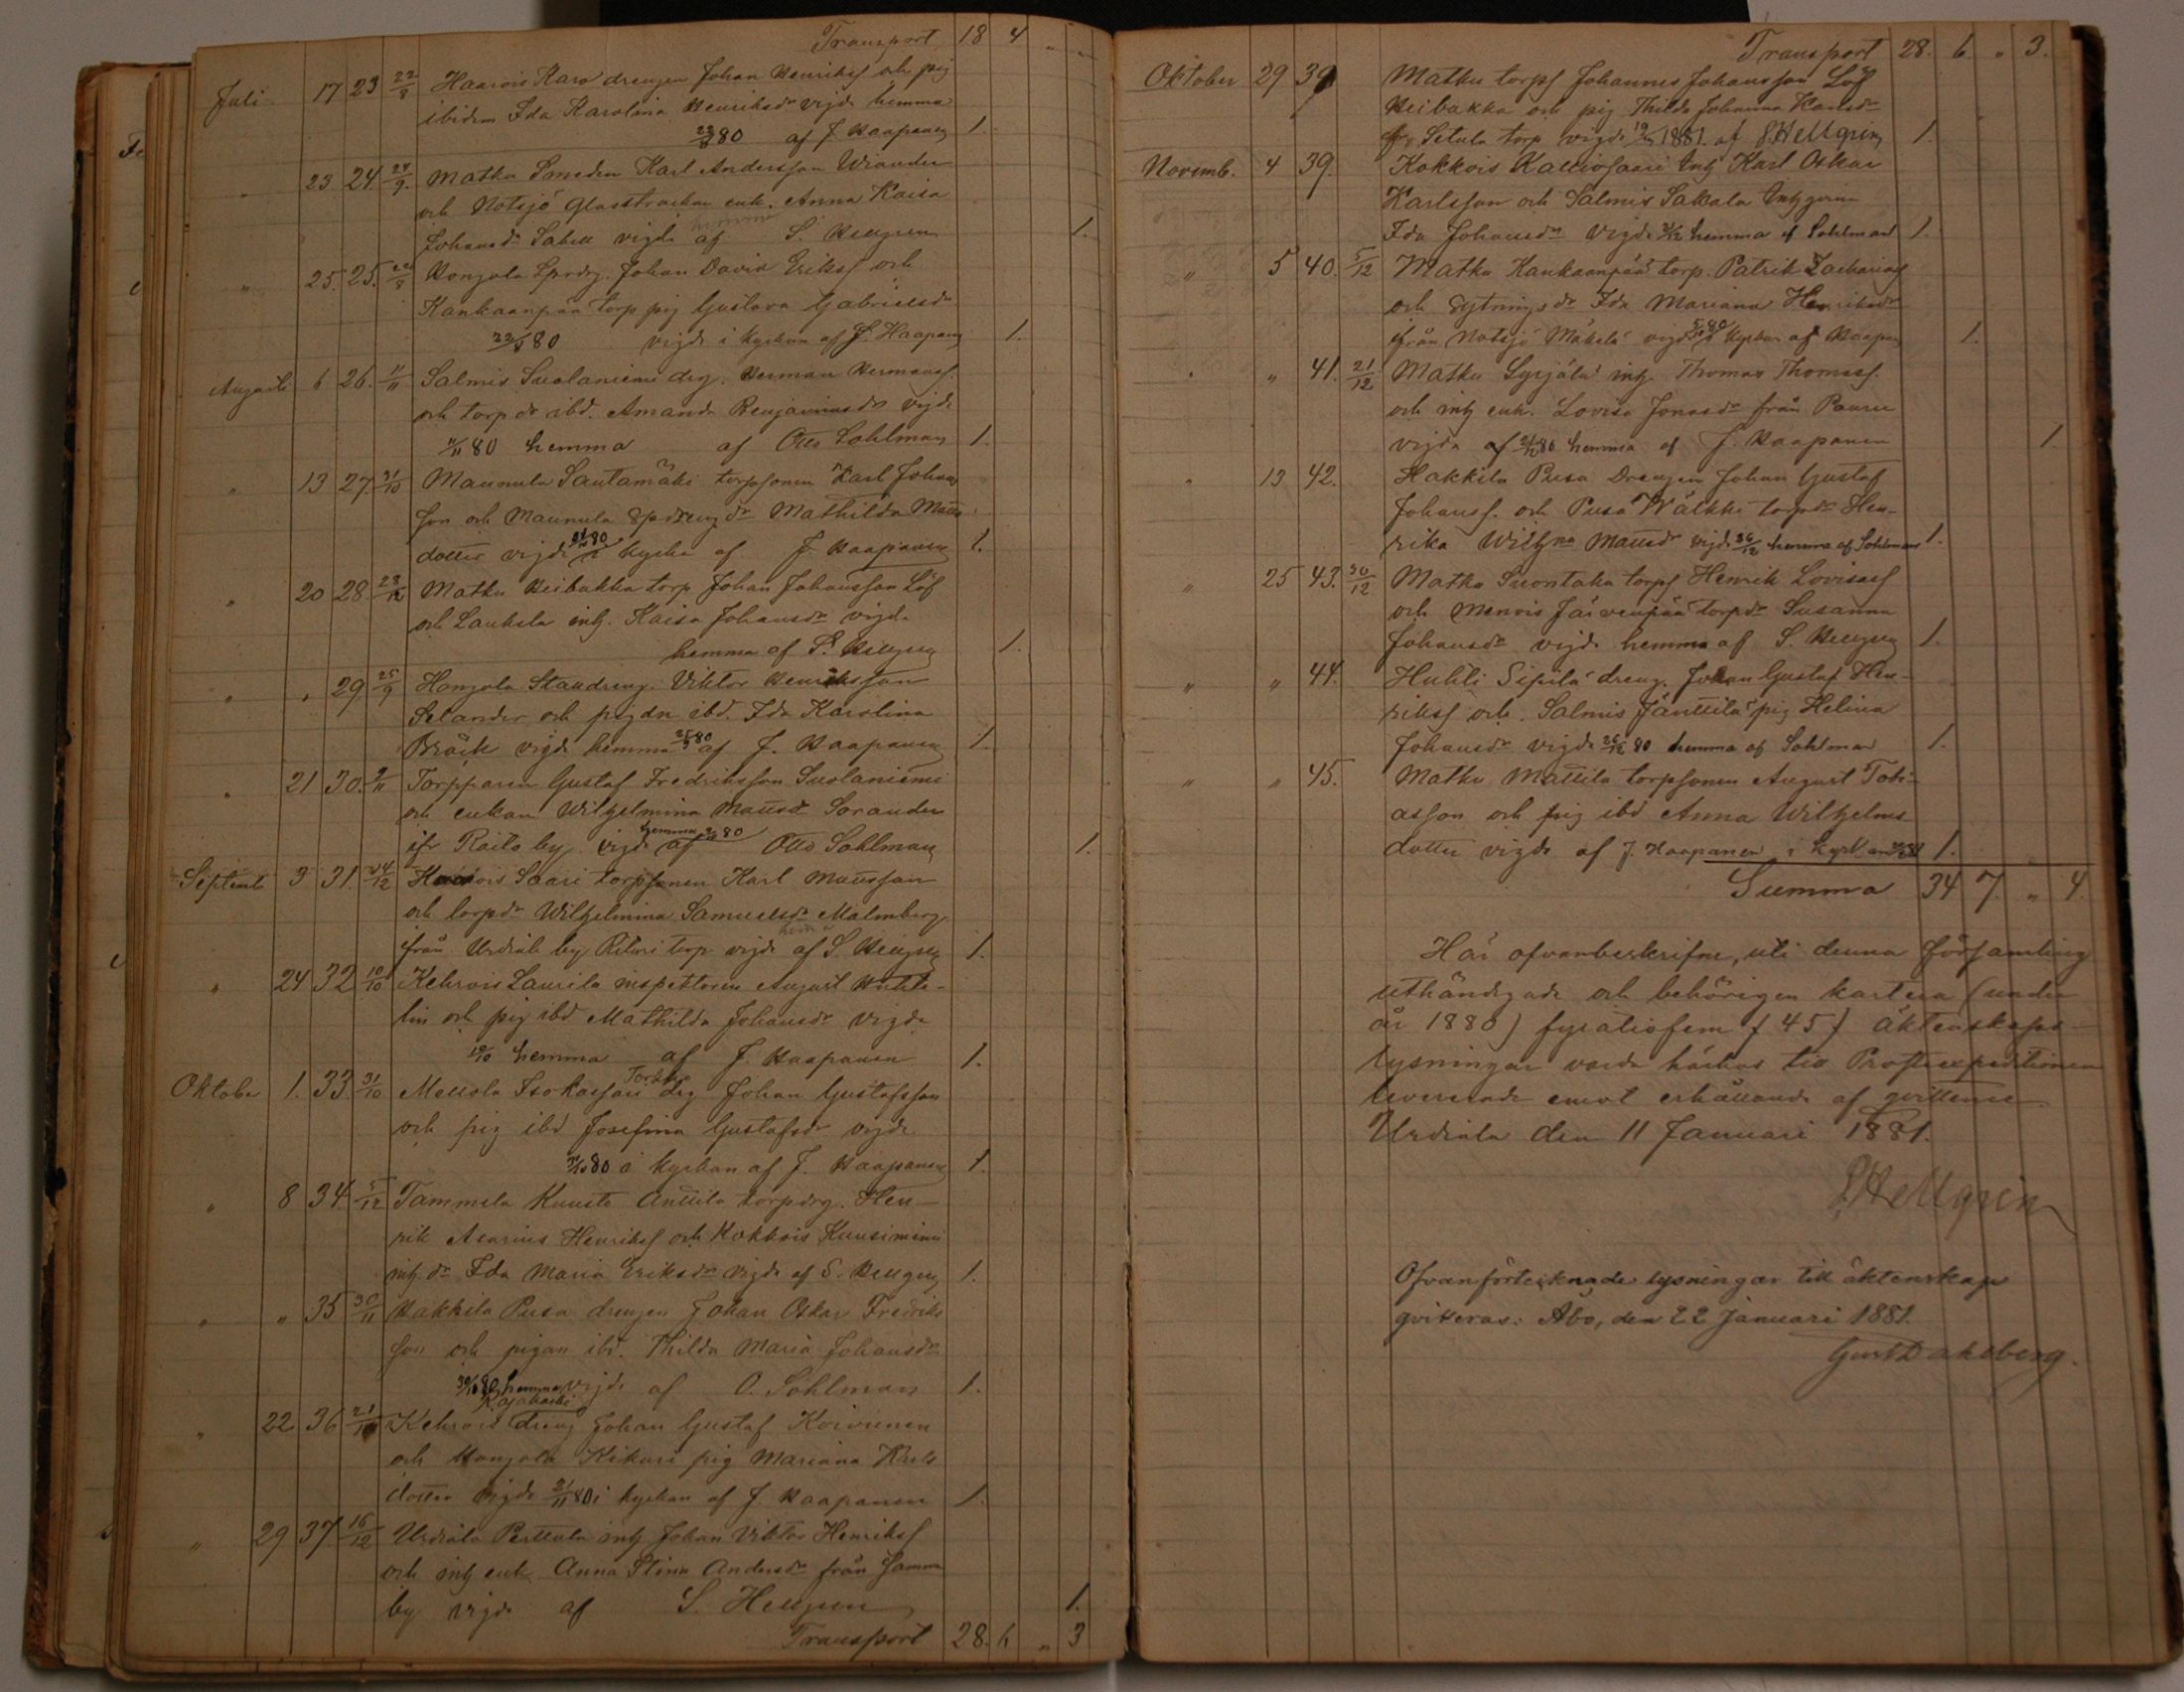 Transport 18 4 " "
Juli 17 23 22/8 Haarois Karo drengen Johan Henrikss och pig
ibidem Ida Karolina Henriksdr vigde hemma
22/8 80 af J. Haapanen 1.
" 23 24 24/9 Matku Smeden Karl Andersson Wiander
och Notsjö enk. Anna Kaisa
Johansdr vigde hemma af S. Hellgren 1.
" 25. 25. 22/8 Honjola Johan David Erikss och
Kankaanpää torp pig Gustava Gabrielsdr
22/8 80 vigde i kyrkan af J. Haapanen 1.
Augusti 6 26. 11/11 Salmis Suolaniemi drg. Herman Hermanss.
och torp dr ibd. Amanda Benjaminsdr vigde
11/11 80 hemma af Otto Sohlman 1.
" 13 27. 31/10 Maunula Santamäki torpsonen Karl Johans
son och Maunula dr Mathilda Matts
dotter vigde 31/10 80 i kyrka af J. Haapanen 1.
" 20 28. 28/12 Matku Heibakka torp Johan Johansson Löf
och Laukela inh. Kaisa Johansdr vigde
hemma af S. Hellgren 1.
" " 29. 25/9 Honjola Viktor Henriksson
Selander och pigan ibd. Ida Karolina
Bräck vigde hemma 25/9 80 af J. Haapanen 1.
" 21 30. 2/11 Torpparen Gustaf Fredriksson Suolaniemi
och enkan Wilhelmina Mattsdr Sorander
ifr Raito by. vigde hemma 2/11 80 af Otto Sohlman 1.
Septemb 3 31. 24/12 Saari torpsonen Karl Mattsson
och torpdr Wilhelmina Samuelsdr Malmberg
från Urdiala by torp vigde hema af S. Hellgren 1.
" 24 32 10/10 Kehrois Laurila inspektoren August
lin och pig ibd Mathilda Johansdr vigde
10/10 hemma af J. Haapanen 1.
Oktober 1. 33. 31/10 Mellola drg Johan Gustafsson
och pig ibd Josefina Gustafsdr vigde
31/10 80 i kyrkan af J. Haapanen 1.
" 8 34. 5/12 Tammela Kuusto Anttila torpdrg. Hen-
rik Henrikss och Kokkois Kuusiniemi
inh. dr Ida Maria Eriksdr vigde af S. Hellgren 1.
" " 35 30/11 Hakkila Pusa drengen Johan Oskar Fredriks
son och pigan ibd. Thilda Maria Johansdr
30/11 80 hemma vigde af O. Sohlman 1.
" 22 36 21/11 Kehrois dreng Johan Gustaf Koivunen
och Honjola Kikuri pig Mariana Karls
dotter vigde 21/11 80 i kyrkan af J. Haapanen 1.
" 29 37 16/12 Urdiala Perttula inh Johan Viktor Henrikss
och inh enk Anna Stina Andersdr från samma
by vigde af S. Hellgren 1.
Transport 28. 6 " 3
Transport 28. 6 " 3.
Oktober 29 39 Matku torps Johannes Johansson Löf
Heibakka och pig Thilda Johanna
Setula torp vigde 1881. af S. Hellgren 1.
Novemb. 4 39. Kokkois Kalliosaari Inh Karl Oskar
Karlsson och Salmis Sakala
Ida Johansdr vigde hemma af Sohlman 1.
" 5 40. 5/12 Matku Kankaanpää torp. Patrik Zachariass
och Sytningsdr Ida Mariana Henriksdr
från Notsjö Mäkelä vigde 5/12 80 i kyrkan af Haapan 1.
" " 41. 21/12 Matku Syrjälä inh. Thomas Thomass.
och inh enk. Lovisa Jonasdr från
vigde af 21/12 80 hemma af J. Haapanen 1.
" 13 42. Hakkila Pusa Drengen Johan Gustaf
Johanss. och Pusa Wälkki torpdr Hen-
rika Wilhna Mattsdr vigde 26/12 hemma af Sohlman 1.
" 25 43. 30/12 Matku Suontaka torps Henrik Lovisass
och Menois Järvenpää torpdr Susanna
Johansdr vigde hemma af S. Hellgren 1.
" " 44. Huhti Sipilä dreng. Johan Gustaf Hen-
rikss och. Salmis Jänttilä pig Helina
Johansdr vigde 26/12 80 hemma af Sohlman 1.
" " 45. Matku Mattila torpsonen August Tobi-
asson och pig ibd Anna Wilhelms
dotter vigde af J. Haapanen i kyrkan 1.
Summa 34 7. " 4.
Här ofvanbeskrifne, uti denna församling
uthändigade och behörigen (under
år 1880) fyratiofem (45) äktenskaps
lysningar varda härhos till Prostexpeditionen
levererade emot erhållande af qvittens
Urdiala den 11 Januari 1881.
S. Hellgren
Ofvanförteiknade lysningar till äktenskap
qvitteras: Åbo, den 22 Januari 1881.
Gust Dahlberg.